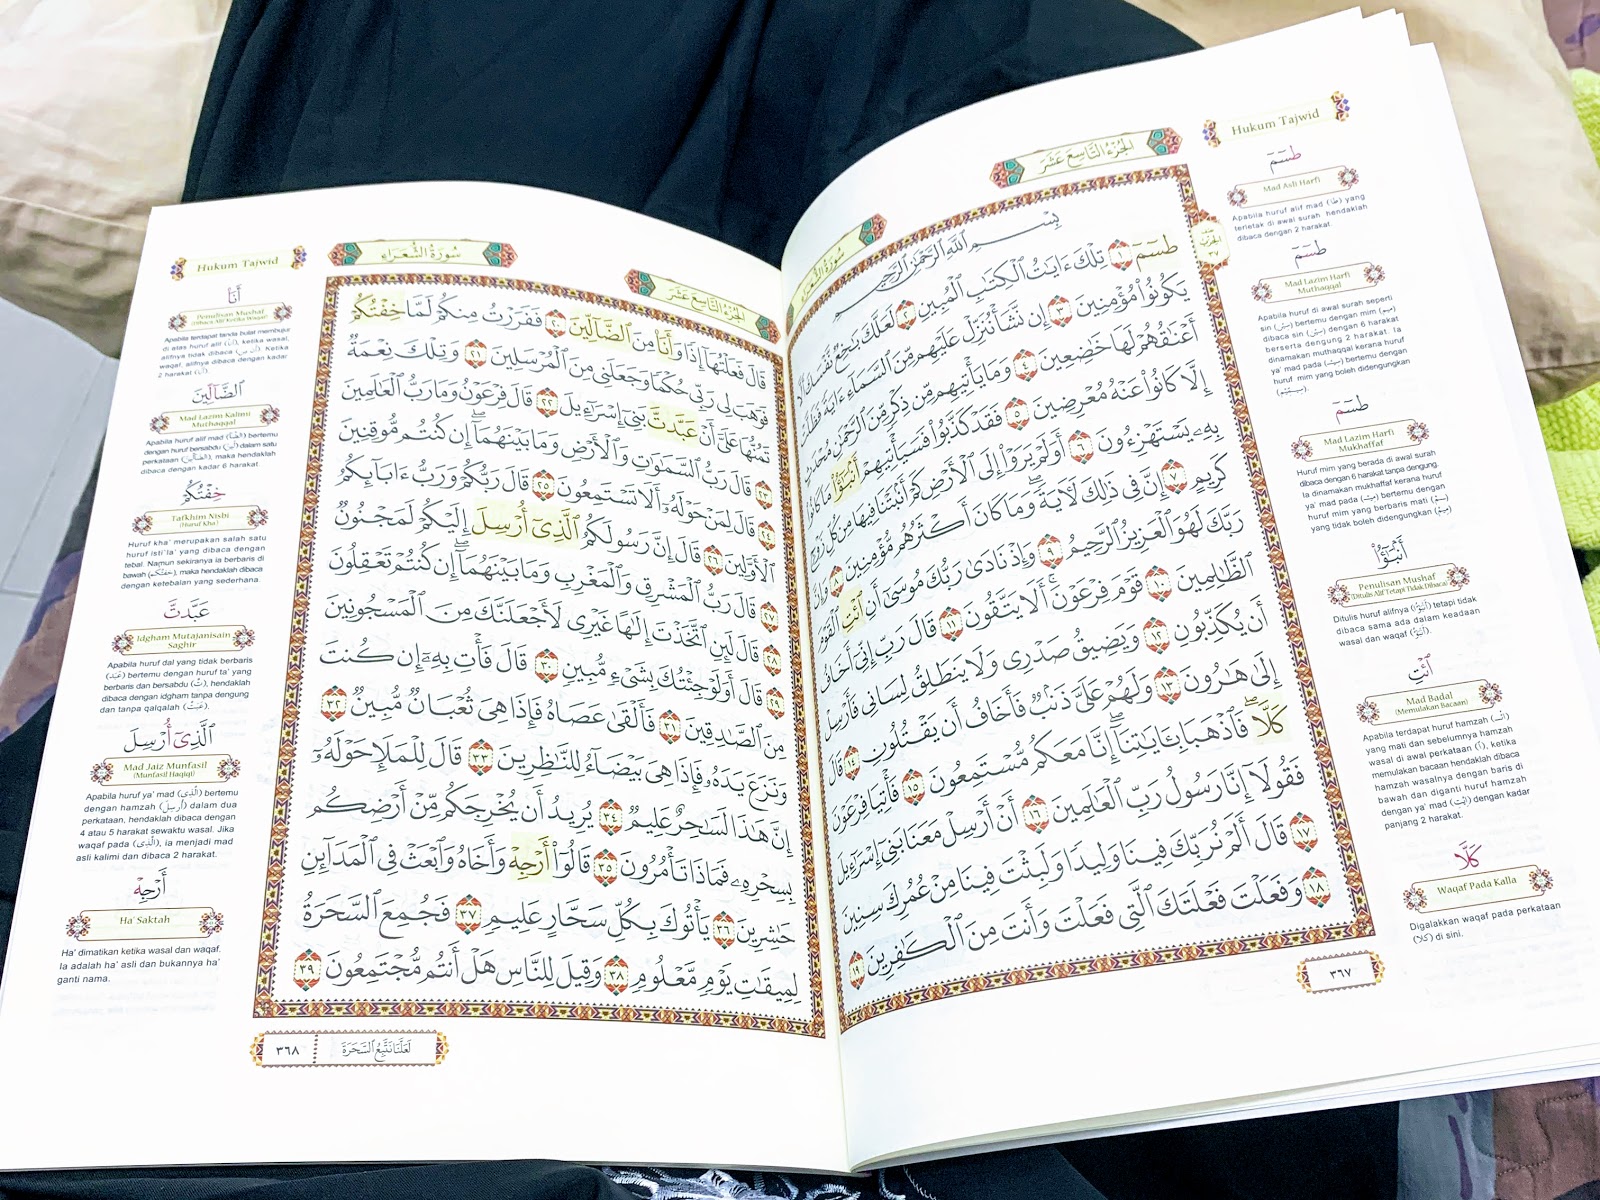 سُورَةُ الشُّعَرَاءِ
الجُزْءُ التَّاسِعَ عَشَرَ
بِسْمِ ٱللَّهِ ٱلرَّحْمَٰنِ ٱلرَّحِيمِ
طسٓمٓ ١ تِلْكَ ءَايَٰتُ ٱلْكِتَٰبِ ٱلْمُبِينِ ٢ لَعَلَّكَ بَٰخِعٌ نَّفْسَكَ أَلَّا
يَكُونُوا۟ مُؤْمِنِينَ ٣ إِن نَّشَأْ نُنَزِّلْ عَلَيْهِم مِّنَ ٱلسَّمَآءِ ءَايَةً فَظَلَّتْ
أَعْنَٰقُهُمْ لَهَا خَٰضِعِينَ ٤ وَمَا يَأْتِيهِم مِّن ذِكْرٍ مِّنَ ٱلرَّحْمَٰنِ مُحْدَثٍ
إِلَّا كَانُوا۟ عَنْهُ مُعْرِضِينَ ٥ فَقَدْ كَذَّبُوا۟ فَسَيَأْتِيهِمْ أَنۢبَٰٓؤُا۟ مَا كَانُوا۟
بِهِۦ يَسْتَهْزِءُونَ ٦ أَوَلَمْ يَرَوْا۟ إِلَى ٱلْأَرْضِ كَمْ أَنۢبَتْنَا فِيهَا مِن كُلِّ زَوْجٍ
كَرِيمٍ ٧ إِنَّ فِى ذَٰلِكَ لَءَايَةً ۖ وَمَا كَانَ أَكْثَرُهُم مُّؤْمِنِينَ ٨ وَإِنَّ
رَبَّكَ لَهُوَ ٱلْعَزِيزُ ٱلرَّحِيمُ ٩ وَإِذْ نَادَىٰ رَبُّكَ مُوسَىٰٓ أَنِ ٱئْتِ ٱلْقَوْمَ
ٱلظَّٰلِمِينَ ١٠ قَوْمَ فِرْعَوْنَ ۚ أَلَا يَتَّقُونَ ١١ قَالَ رَبِّ إِنِّىٓ أَخَافُ
أَن يُكَذِّبُونِ ١٢ وَيَضِيقُ صَدْرِى وَلَا يَنطَلِقُ لِسَانِى فَأَرْسِلْ
إِلَىٰ هَٰرُونَ ١٣ وَلَهُمْ عَلَىَّ ذَنۢبٌ فَأَخَافُ أَن يَقْتُلُونِ ١٤ قَالَ
كَلَّا ۖ فَٱذْهَبَا بِـَٔايَٰتِنَآ ۖ إِنَّا مَعَكُم مُّسْتَمِعُونَ ١٥ فَأْتِيَا فِرْعَوْنَ
فَقُولَآ إِنَّا رَسُولُ رَبِّ ٱلْعَٰلَمِينَ ١٦ أَنْ أَرْسِلْ مَعَنَا بَنِىٓ إِسْرَٰٓءِيلَ
١٧ قَالَ أَلَمْ نُرَبِّكَ فِينَا وَلِيدًا وَلَبِثْتَ فِينَا مِنْ عُمُرِكَ سِنِينَ
١٨ وَفَعَلْتَ فَعْلَتَكَ ٱلَّتِى فَعَلْتَ وَأَنتَ مِنَ ٱلْكَٰفِرِينَ ١٩
٣٦٧
Hukum Tajwid
طسٓمٓ
Mad Asli Harfi
Apabila huruf alif mad (طا) yang
terletak di awal surah hendaklah
dibaca dengan 2 harakat.
طسٓمٓ
Mad Lazim Harfi
Muthaqqal
Huruf mim di awal surah seperti
sin (سين) bertemu dengan mim (ميم)
dibaca sin (سين) dengan 6 harakat
berserta dengung 2 harakat. Ia
dinamakan muthaqqal kerana huruf
ya' mad pada (سين) bertemu dengan
huruf mim yang boleh didengungkan
طسٓمٓ
Mad Lazim Harfi
Mukhaffaf
Huruf mim yang berada di awal surah
dibaca dengan 6 harakat tanpa dengung.
Ia dinamakan mukhaffaf kerana huruf
ya' mad pada (ميم) bertemu dengan
huruf mim yang berbaris mati (ميم)
yang tidak boleh didengungkan (ميم).
أَنۢبَٰٓؤُا۟
Penulisan Mushaf
(Ditulis Alif Tetapi Tidak Dibaca)
Ditulis huruf alifnya (أنبؤا) tetapi tidak
dibaca sama ada dalam keadaan
wasal dan waqaf (أنبؤا).
ٱئْتِ
Mad Badal
(Memulakan Bacaan)
Apabila terdapat huruf hamzah (ائت)
yang mati dan sebelumnya hamzah
wasal di awal perkataan (ا), ketika
memulakan bacaan hendaklah dibaca
hamzah wasalnya dengan baris di
bawah dan diganti huruf hamzah
dengan ya' mad (ائت) dengan kadar
panjang 2 harakat.
كَلَّا
Waqaf Pada Kalla
Digalakkan waqaf pada perkataan
(كلا) di sini.
سُورَةُ الشُّعَرَاءِ
الجُزْءُ التَّاسِعَ عَشَرَ
قَالَ فَعَلْتُهَآ إِذًا وَأَنَا۠ مِنَ ٱلضَّآلِّينَ ٢٠ فَفَرَرْتُ مِنكُمْ لَمَّا خِفْتُكُمْ
فَوَهَبَ لِى رَبِّى حُكْمًا وَجَعَلَنِى مِنَ ٱلْمُرْسَلِينَ ٢١ وَتِلْكَ نِعْمَةٌ
تَمُنُّهَا عَلَىَّ أَنْ عَبَّدتَّ بَنِىٓ إِسْرَٰٓءِيلَ ٢٢ قَالَ فِرْعَوْنُ وَمَا رَبُّ ٱلْعَٰلَمِينَ
٢٣ قَالَ رَبُّ ٱلسَّمَٰوَٰتِ وَٱلْأَرْضِ وَمَا بَيْنَهُمَآ ۖ إِن كُنتُم مُّوقِنِينَ
٢٤ قَالَ لِمَنْ حَوْلَهُۥٓ أَلَا تَسْتَمِعُونَ ٢٥ قَالَ رَبُّكُمْ وَرَبُّ ءَابَآئِكُمُ
ٱلْأَوَّلِينَ ٢٦ قَالَ إِنَّ رَسُولَكُمُ ٱلَّذِىٓ أُرْسِلَ إِلَيْكُمْ لَمَجْنُونٌ
٢٧ قَالَ رَبُّ ٱلْمَشْرِقِ وَٱلْمَغْرِبِ وَمَا بَيْنَهُمَآ ۖ إِن كُنتُمْ تَعْقِلُونَ
٢٨ قَالَ لَئِنِ ٱتَّخَذْتَ إِلَٰهًا غَيْرِى لَأَجْعَلَنَّكَ مِنَ ٱلْمَسْجُونِينَ
٢٩ قَالَ أَوَلَوْ جِئْتُكَ بِشَىْءٍ مُّبِينٍ ٣٠ قَالَ فَأْتِ بِهِۦٓ إِن كُنتَ
مِنَ ٱلصَّٰدِقِينَ ٣١ فَأَلْقَىٰ عَصَاهُ فَإِذَا هِىَ ثُعْبَانٌ مُّبِينٌ ٣٢
وَنَزَعَ يَدَهُۥ فَإِذَا هِىَ بَيْضَآءُ لِلنَّٰظِرِينَ ٣٣ قَالَ لِلْمَلَإِ حَوْلَهُۥٓ
إِنَّ هَٰذَا لَسَٰحِرٌ عَلِيمٌ ٣٤ يُرِيدُ أَن يُخْرِجَكُم مِّنْ أَرْضِكُم
بِسِحْرِهِۦ فَمَاذَا تَأْمُرُونَ ٣٥ قَالُوٓا۟ أَرْجِهْ وَأَخَاهُ وَٱبْعَثْ فِى ٱلْمَدَآئِنِ
حَٰشِرِينَ ٣٦ يَأْتُوكَ بِكُلِّ سَحَّارٍ عَلِيمٍ ٣٧ فَجُمِعَ ٱلسَّحَرَةُ
لِمِيقَٰتِ يَوْمٍ مَّعْلُومٍ ٣٨ وَقِيلَ لِلنَّاسِ هَلْ أَنتُم مُّجْتَمِعُونَ ٣٩
لَعَلَّنَا نَتَّبِعُ السَّحَرَةَ
٣٦٨
Hukum Tajwid
أَنَا۠
Penulisan Mushaf
(Dibaca Alif Ketika Waqaf)
Apabila terdapat tanda bulat membujur
di atas huruf alif (أنا), ketika wasal,
alifnya tidak dibaca (أن من). Ketika
waqaf, alifnya dibaca dengan kadar
2 harakat (أنا).
ٱلضَّآلِّينَ
Mad Lazim Kalimi
Muthaqqal
Apabila huruf alif mad (الضا) bertemu
dengan huruf bersabdu (لين) dalam satu
perkataan (الضالين), maka hendaklah
dibaca dengan kadar 6 harakat.
خِفْتُكُمْ
Tafkhim Nisbi
(Huruf Kha')
Huruf kha' merupakan salah satu
huruf isti'la' yang dibaca dengan
tebal. Namun sekiranya ia berbaris di
bawah (خفتكم), maka hendaklah dibaca
dengan ketebalan yang sederhana.
عَبَّدتَّ
Idgham Mutajanisain
Saghir
Apabila huruf dal yang tidak berbaris
(عبد) bertemu dengan huruf ta' yang
berbaris dan bersabdu (ت), hendaklah
dibaca dengan idgham tanpa dengung
dan tanpa qalqalah (عبت).
ٱلَّذِىٓ أُرْسِلَ
Mad Jaiz Munfasil
(Munfasil Haqiqi)
Apabila huruf ya' mad (الذى) bertemu
dengan hamzah (أرسل) dalam dua
perkataan, hendaklah dibaca dengan
4 atau 5 harakat sewaktu wasal. Jika
waqaf pada (الذى), ia menjadi mad
asli kalimi dan dibaca 2 harakat.
أَرْجِهْ
Ha' Saktah
Ha' dimatikan ketika wasal dan waqaf.
Ia adalah ha' asli dan bukannya ha'
ganti nama.